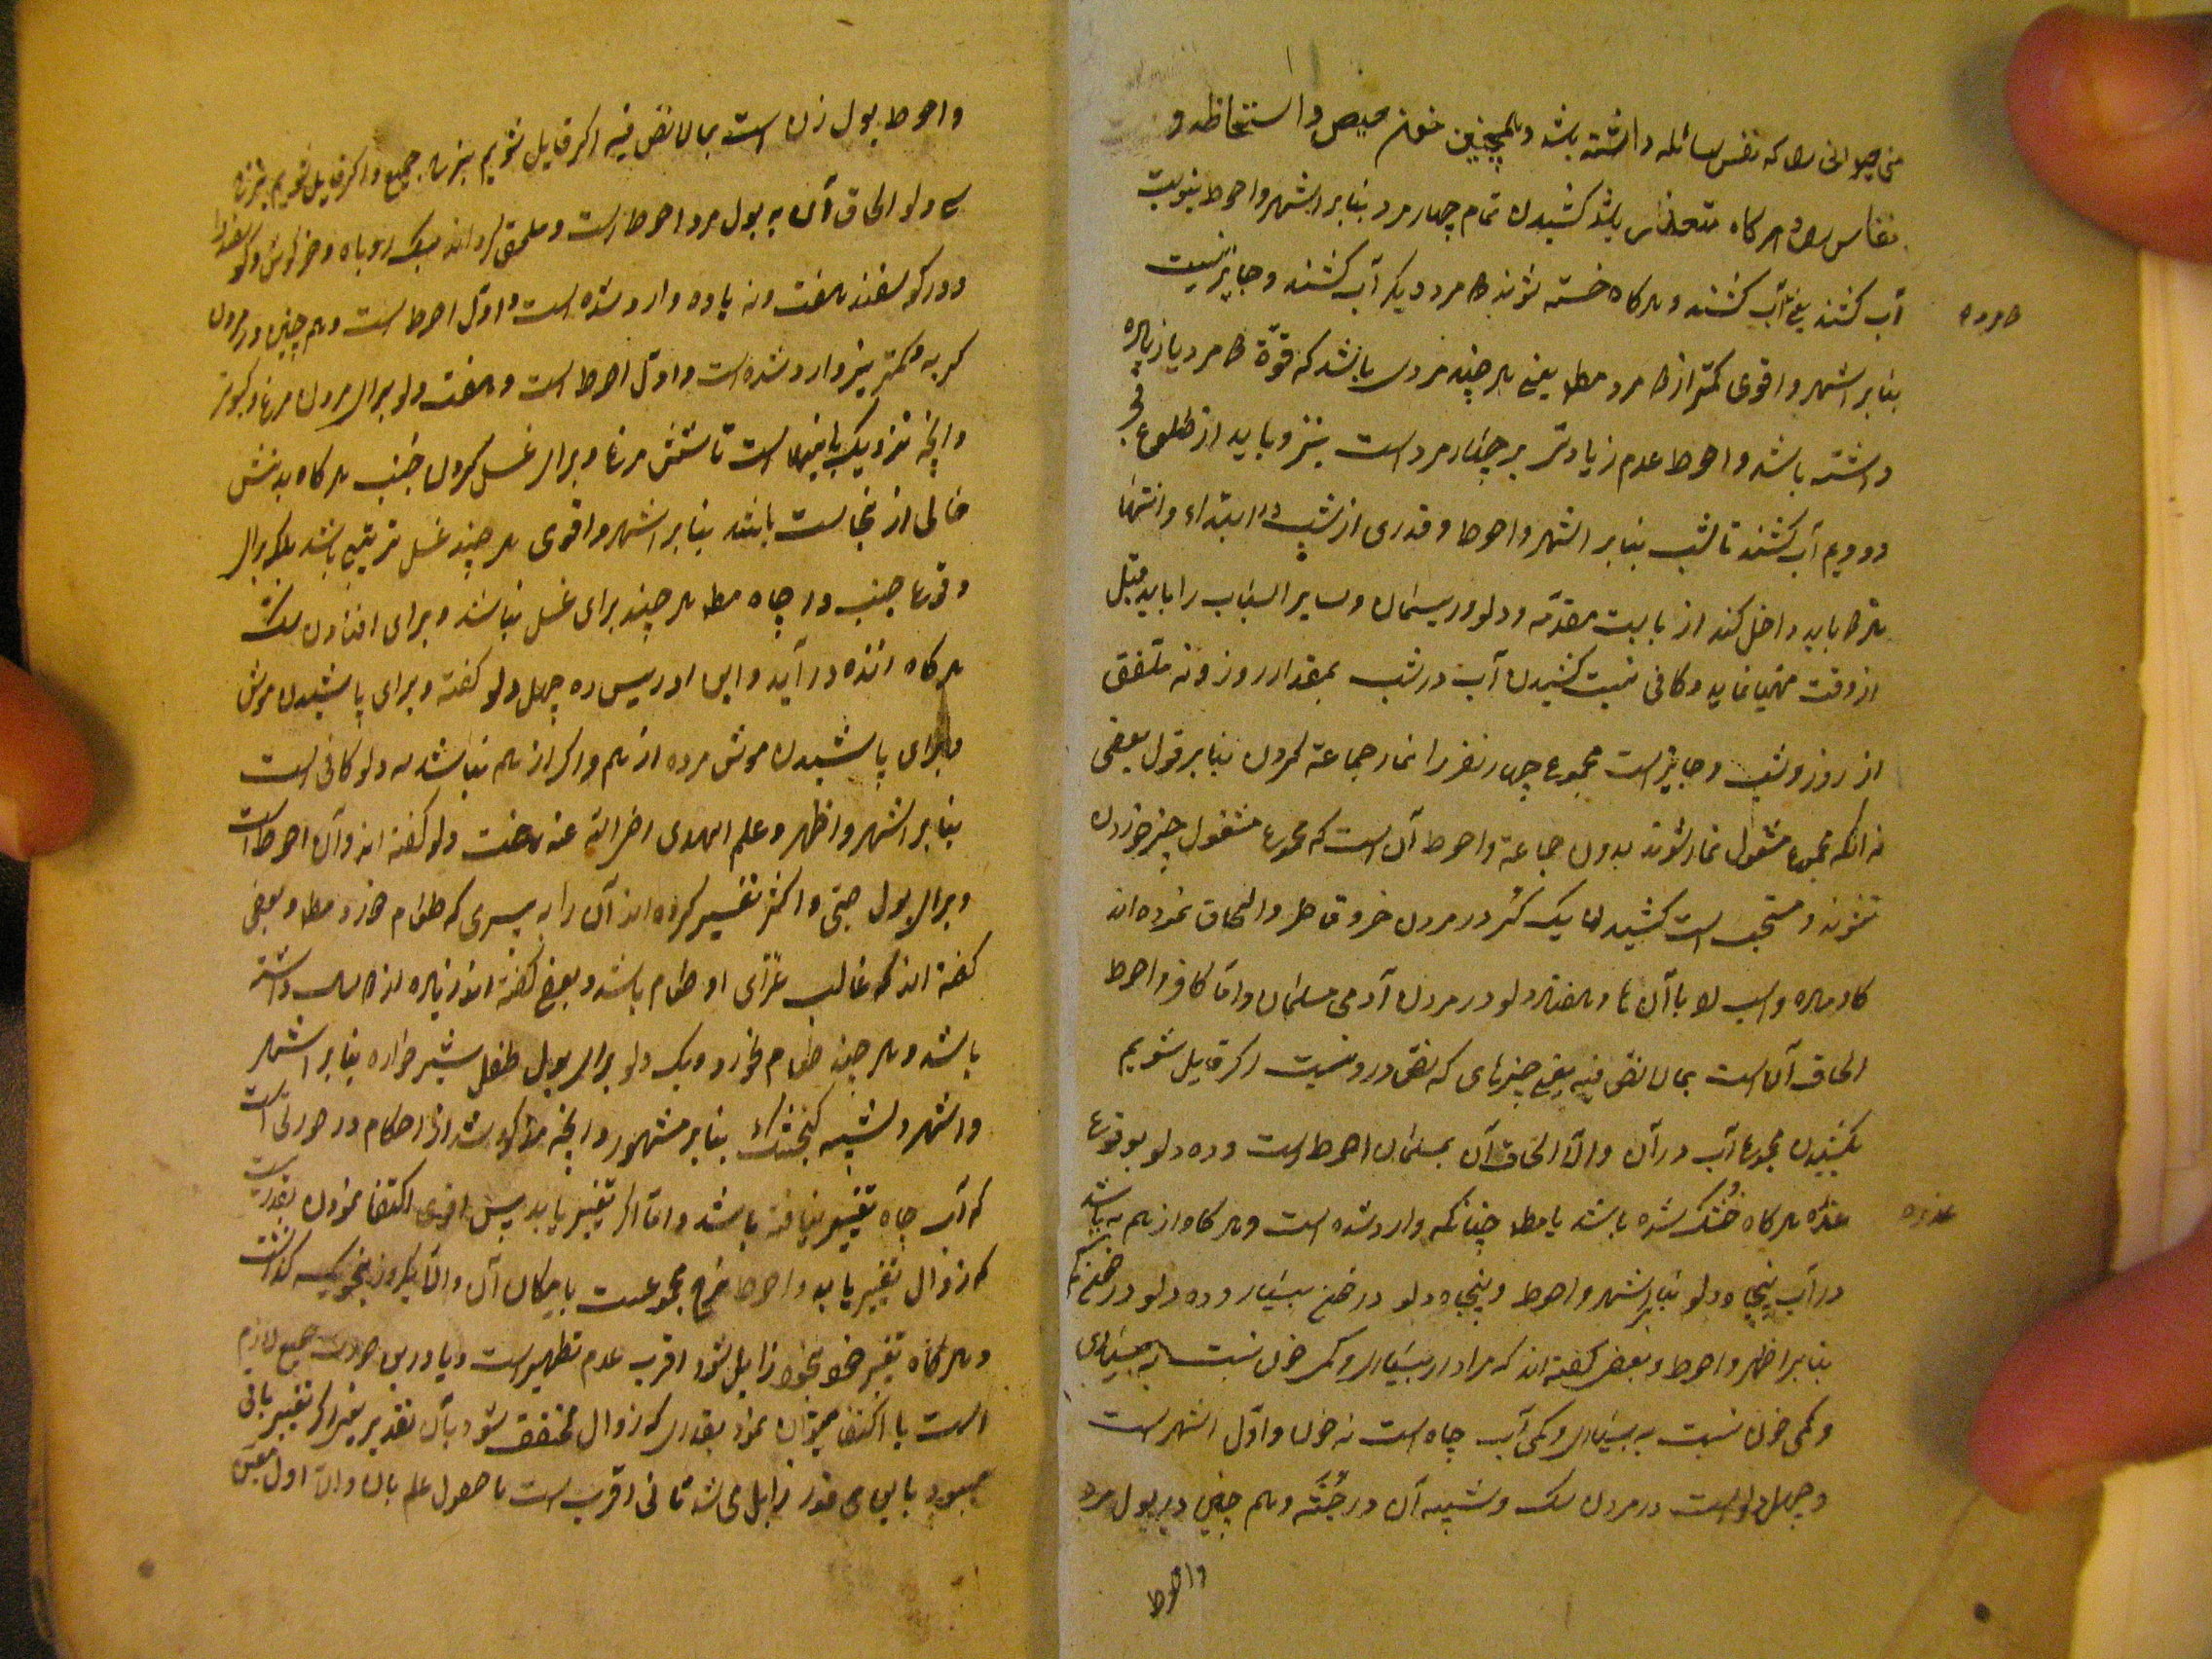 حیوانی را که نفس سائله داشته باشد و همچنین خون حیض و استحاضه و
نفاس و هر گاه متعذر باشد کشیدن تمام چهار مرد بنابر اشهر و احوط بنوبت
آب کشند یعنی آب کشند و هر گاه خسته شوند مرد دیگر آب کشند و جایز نیست
بنابر اشهر و اقوی کمتر از مرد مط یعنی هر چند مردی باشد که قوة مرد یا زیاده
داشته باشد و احوط عدم زیادتی بر چهار مرد است نیز و باید از طلوع فجر
دویم آب کشند تا شب بنابر اشهر و احوط و قدری از شب در ابتداء و انتها
باید داخل کند از بابت مقدمه و دلو و ریسمان و سایر اسباب را باید قبل
از وقت مهیا نماید و کافی نیست کشیدن آب در شب بمقدار روز و نه ملفق
از روز و شب و جایز است مجموع چهار نفر را نماز جماعة کردن بنابر قول بعضی
نه انکه مجموع مشغول نماز شوند بدون جماعة و احوط آن است که مجموع مشغول چیز خوردن
نشوند و مستحب است کشیدن یک کر در مردن خر و قاطر و الحاق نموده اند
کاو ماده و اسب را با آن ها و هفتاد دلو در مردن آدمی مسلمان و اما کافر احوط
الحاق آن است بمالا نص فیه یعنی چیزهای که نص در او نیست اکر قایل شویم
بکشیدن مجموع آب در آن والا الحاق آن بمسلمان احوط است و ده دلو بوقوع
عذره هر کاه خشک شده باشد یا مط چنانکه وارد شده است و هر کاه از هم پاشد
در آب پنجاه دلو بنابر اشهر و احوط و پنجاه دلو در خون بسیار و ده دلو در خون کم
بنابر اظهر و احوط و بعضی کفته اند که مراد از بسیاری و کمی خون نسبت به بسیاری
و کمی خون نسبت به بسیاری و کمی آب چاه است نه خون و اول اشهر است
و چهل دلو است در مردن سک و شبیه آن در جثه و هم چنین در بول مرد
واحوط
عذره
واحوط بول زن است بمالا نص فیه اکر قایل شویم بنزح جمیع و اکر قایل شویم بنزح
سی دلو الحاق آن به بول مرد احوط است و ملحق کرده اند بسک روباه و خرکوش و کوسفند را
و در کوسفند هفت و نه یا ده وارد شده است و اول احوط است و هم چنین در مردن
کربه و کمتر نیز وارد شده است و اول احوط است و هفت دلو برای مردن مرغ و کبوتر
و انچه نزدیک باینها است تا شتر مرغ و برای غسل کردن جنب هر کاه بدنش
خالی از نجاست باشد بنابر اشهر و اقوی هر چند غسل ترتیبی باشد بلکه برای
وقوع جنب در چاه مط هر چند برای غسل نباشد و برای افتادن سک
هر کاه زنده در آید و ابن ادریس ره چهل دلو کفته و برای پاشیدن موش
و برای پاشیدن موش مرده از هم و اکر از هم نپاشد سه دلو کافی است
بنابر اشهر و اظهر و علم الهدی رضی الله عنه هفت دلو کفته اند و آن احوط است
و برای بول صبی و اکثر تفسیر کرده اند آن را به پسری که طعام خورد مط و بعضی
کفته اند که غالب غذای او طعام باشد و بعضی کفته اند زیاده از دو سال داشته
باشد و هر چند طعام نخورد و یک دلو برای بول طفل شیر خواره بنابر اشهر
و اشهر و شبیه کنجشک بنابر مشهور و انچه مذکور شد از احکام در صورتی است
که آب چاه تغییر نیافته باشد و اما اکر تغییر یابد پس اقوی اکتفا نمودن بقدریست
که زوال تغییر یابد و احوط نزح مجموعست با امکان آن والا یکروز بنحویکه کذشت
و هر کاه تغییر خود بخود زایل شود اقرب عدم تطهیر است و یا در این صورت جمیع لازم
است یا اکتفا میتوان نمود بقدری که زوال متحقق شود بآن تقدیر یعنی اکر تغییر باقی
میبود باین قدر زایل می شد ثانی اقرب است با حصول علم بآن والا اول متعین